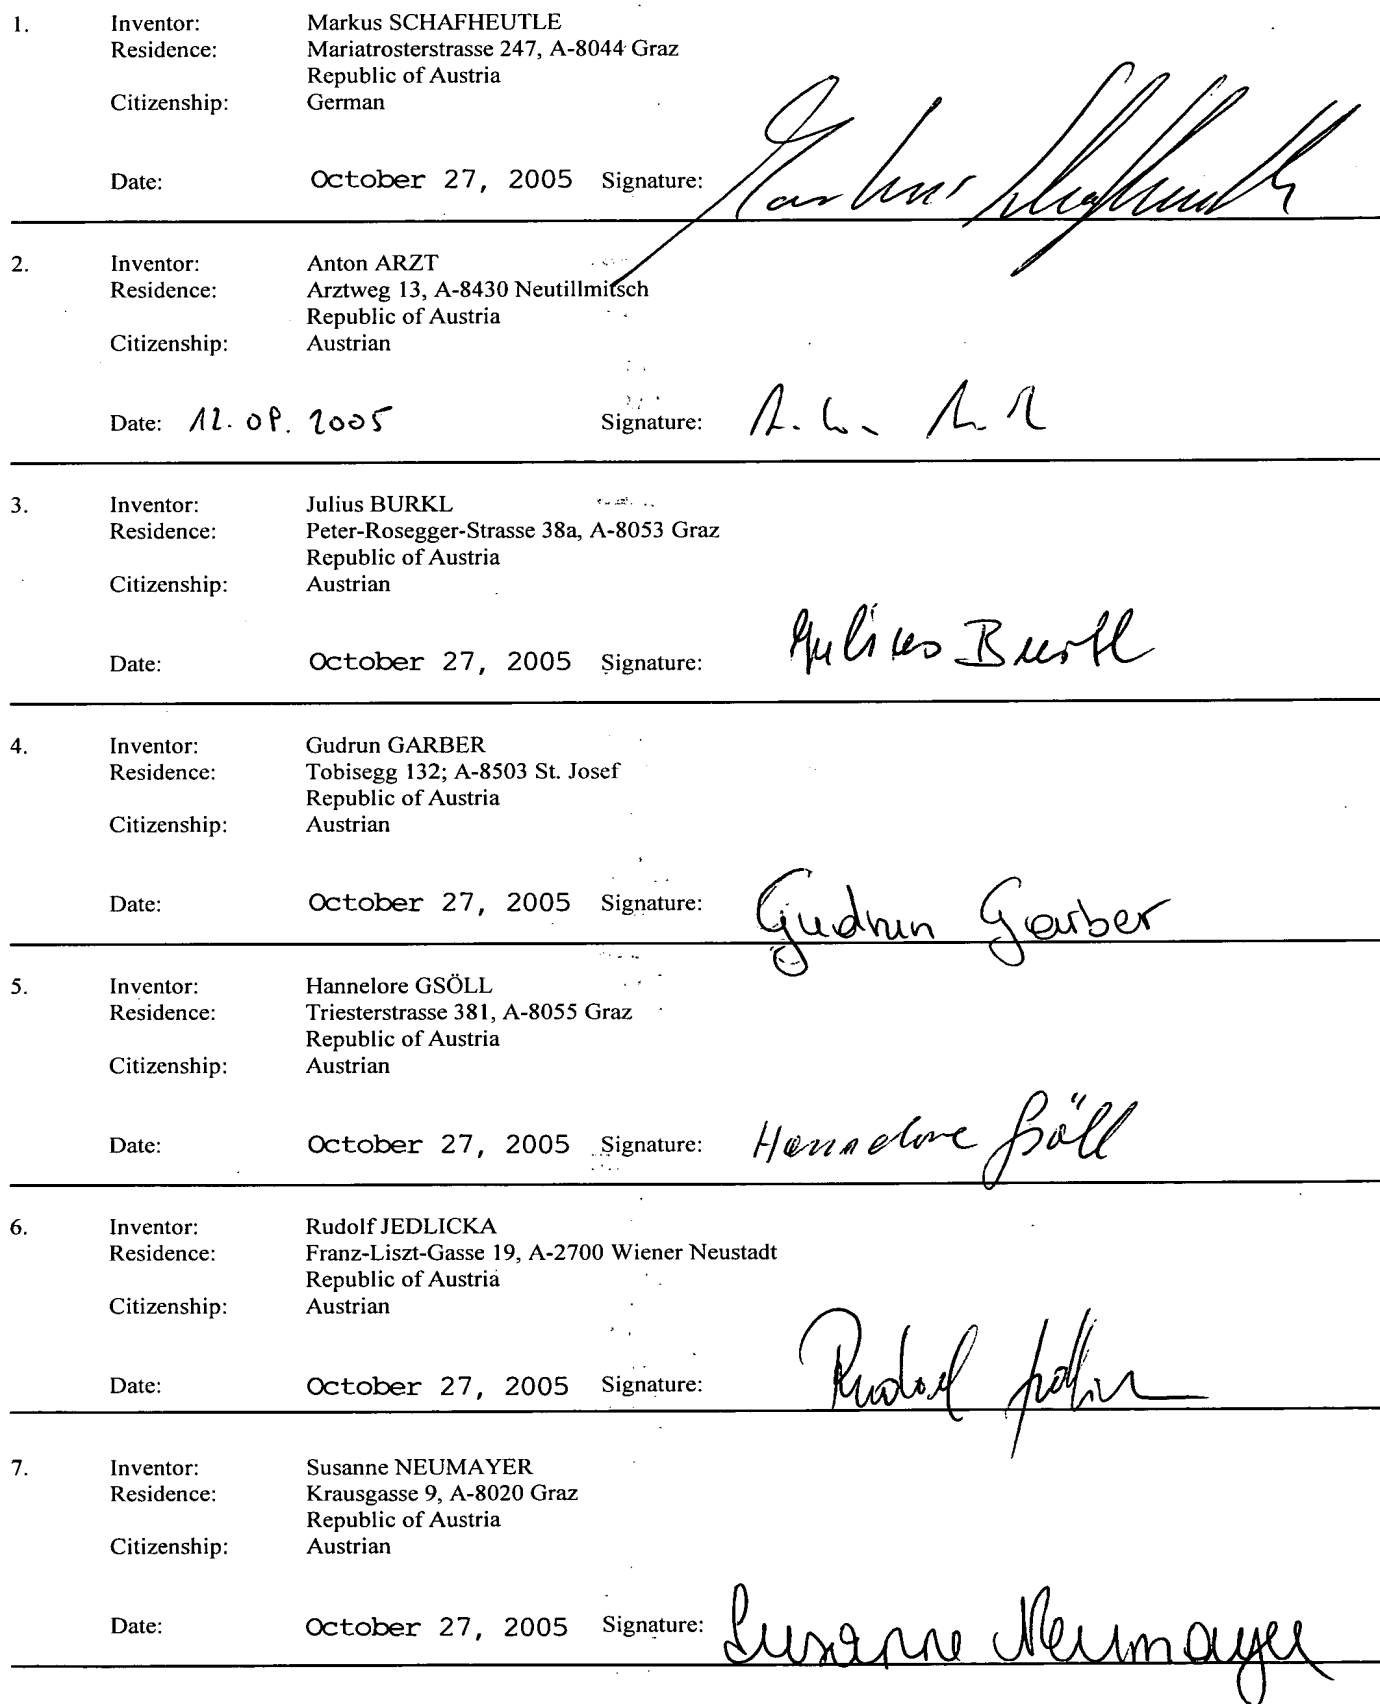 1. Inventor: Markus SCHAFHEUTLE
Residence: Mariatrosterstrasse 247, A-8044 Graz
Republic of Austria
Citizenship: German
Date: October 27, 2005 Signature: Markus Schafheutle
2. Inventor: Anton ARZT
Residence: Arztweg 13, A-8430 Neutillmitsch
Republic of Austria
Citizenship: Austrian
Date: 12.09.2005 Signature:
3. Inventor: Julius BURKL
Residence: Peter-Rosegger-Strasse 38a, A-8053 Graz
Republic of Austria
Citizenship: Austrian
Date: October 27, 2005 Signature: Julius Burkl
4. Inventor: Gudrun GARBER
Residence: Tobisegg 132; A-8503 St. Josef
Republic of Austria
Citizenship: Austrian
Date: October 27, 2005 Signature: Gudrun Garber
5. Inventor: Hannelore GSÖLL
Residence: Triesterstrasse 381, A-8055 Graz
Republic of Austria
Citizenship: Austrian
Date: October 27, 2005 Signature: Hannelore Gsöll
6. Inventor: Rudolf JEDLICKA
Residence: Franz-Liszt-Gasse 19, A-2700 Wiener Neustadt
Republic of Austria
Citizenship: Austrian
Date: October 27, 2005 Signature: Rudolf
7. Inventor: Susanne NEUMAYER
Residence: Krausgasse 9, A-8020 Graz
Republic of Austria
Citizenship: Austrian
Date: October 27, 2005 Signature: Susanne Neumayer